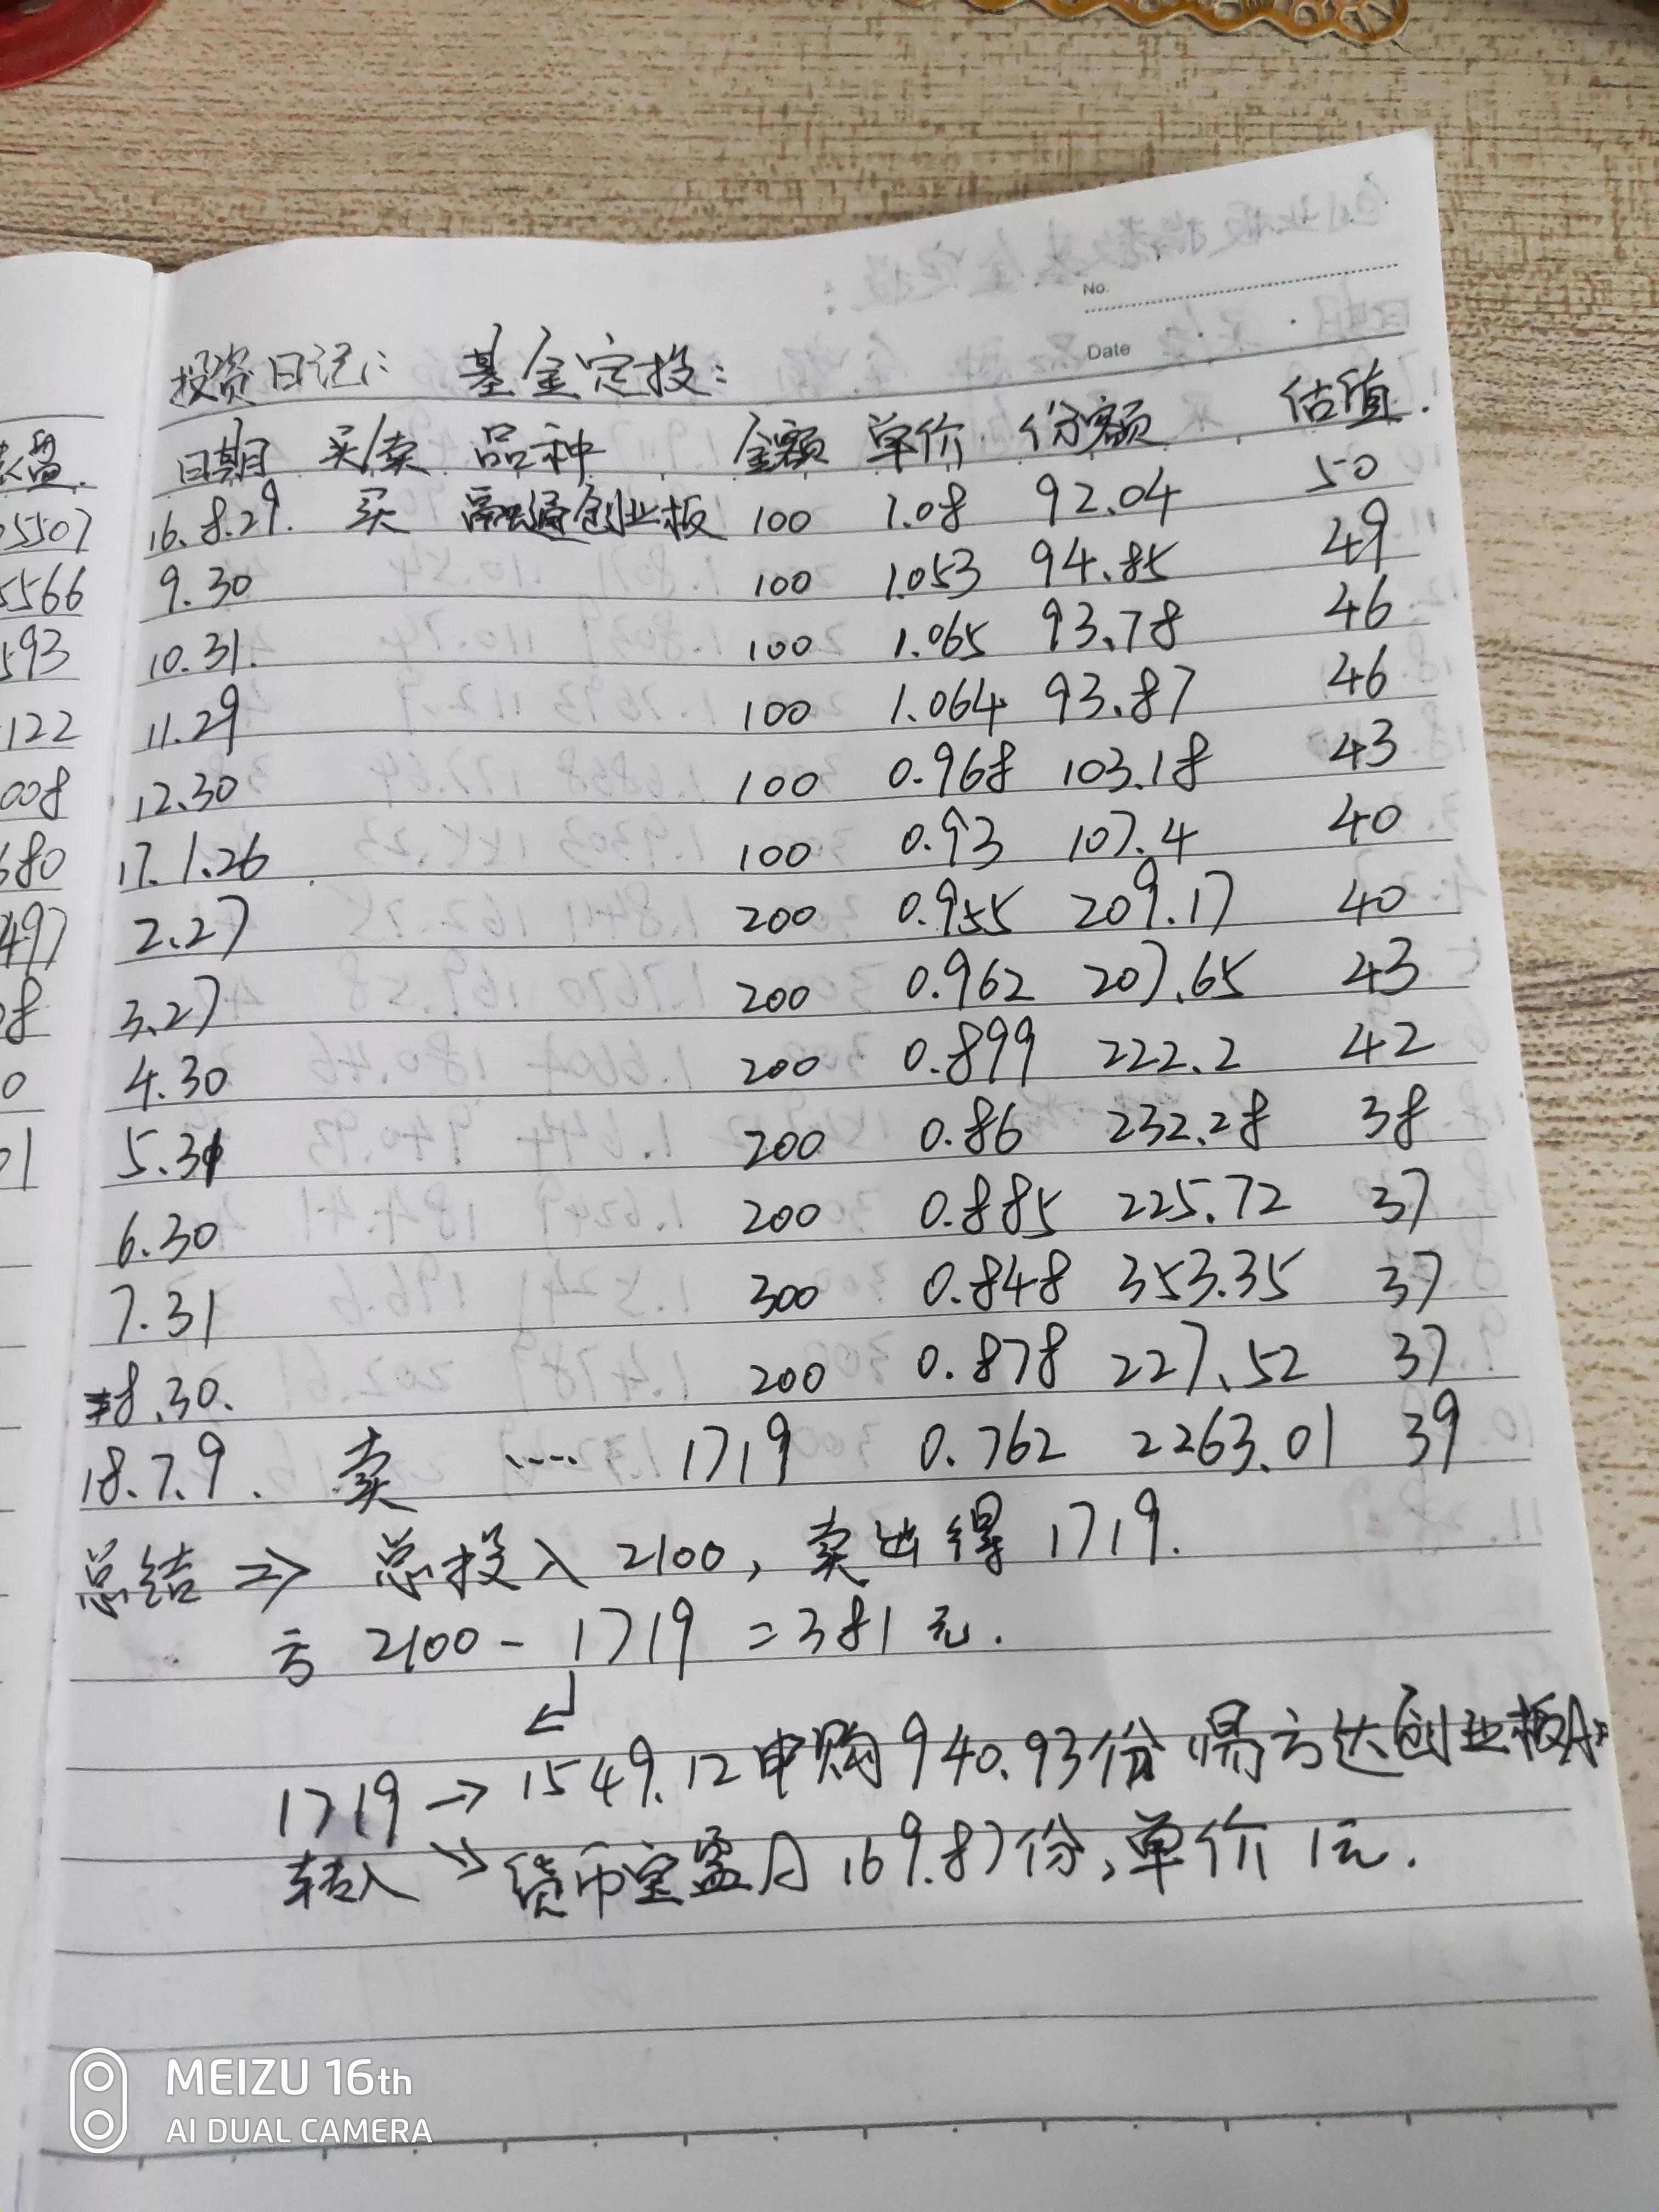 No.
Date
投资日记： 基金定投：
日期 买/卖 品种 金额 单价 份额 估值.
16.8.29. 买 融通创业板 100 1.08 92.04 50
9.30 100 1.053 94.85 49
10.31. 100 1.065 93.78 46
11.29 100 1.064 93.87 46
12.30 100 0.968 103.18 43
17.1.26 100 0.93 107.4 40
2.27 200 0.955 209.17 40
3.27 200 0.962 207.65 43
4.30 200 0.899 222.2 42
5.31 200 0.86 232.28 38
6.30 200 0.885 225.72 37
7.31 300 0.848 353.35 37
8.30. 200 0.878 227.52 37
18.7.9. 卖 ..... 1719 0.762 2263.01 39
总结 => 总投入2100, 卖出得1719.
亏 2100-1719=381元.
1719 → 1549.12申购940.93份 易方达创业板A
转入 → 货币宝盈A 169.87份,单价1元.
盈.
5507
5566
593
122
008
680
497
08
0
01
MEIZU 16th
AI DUAL CAMERA